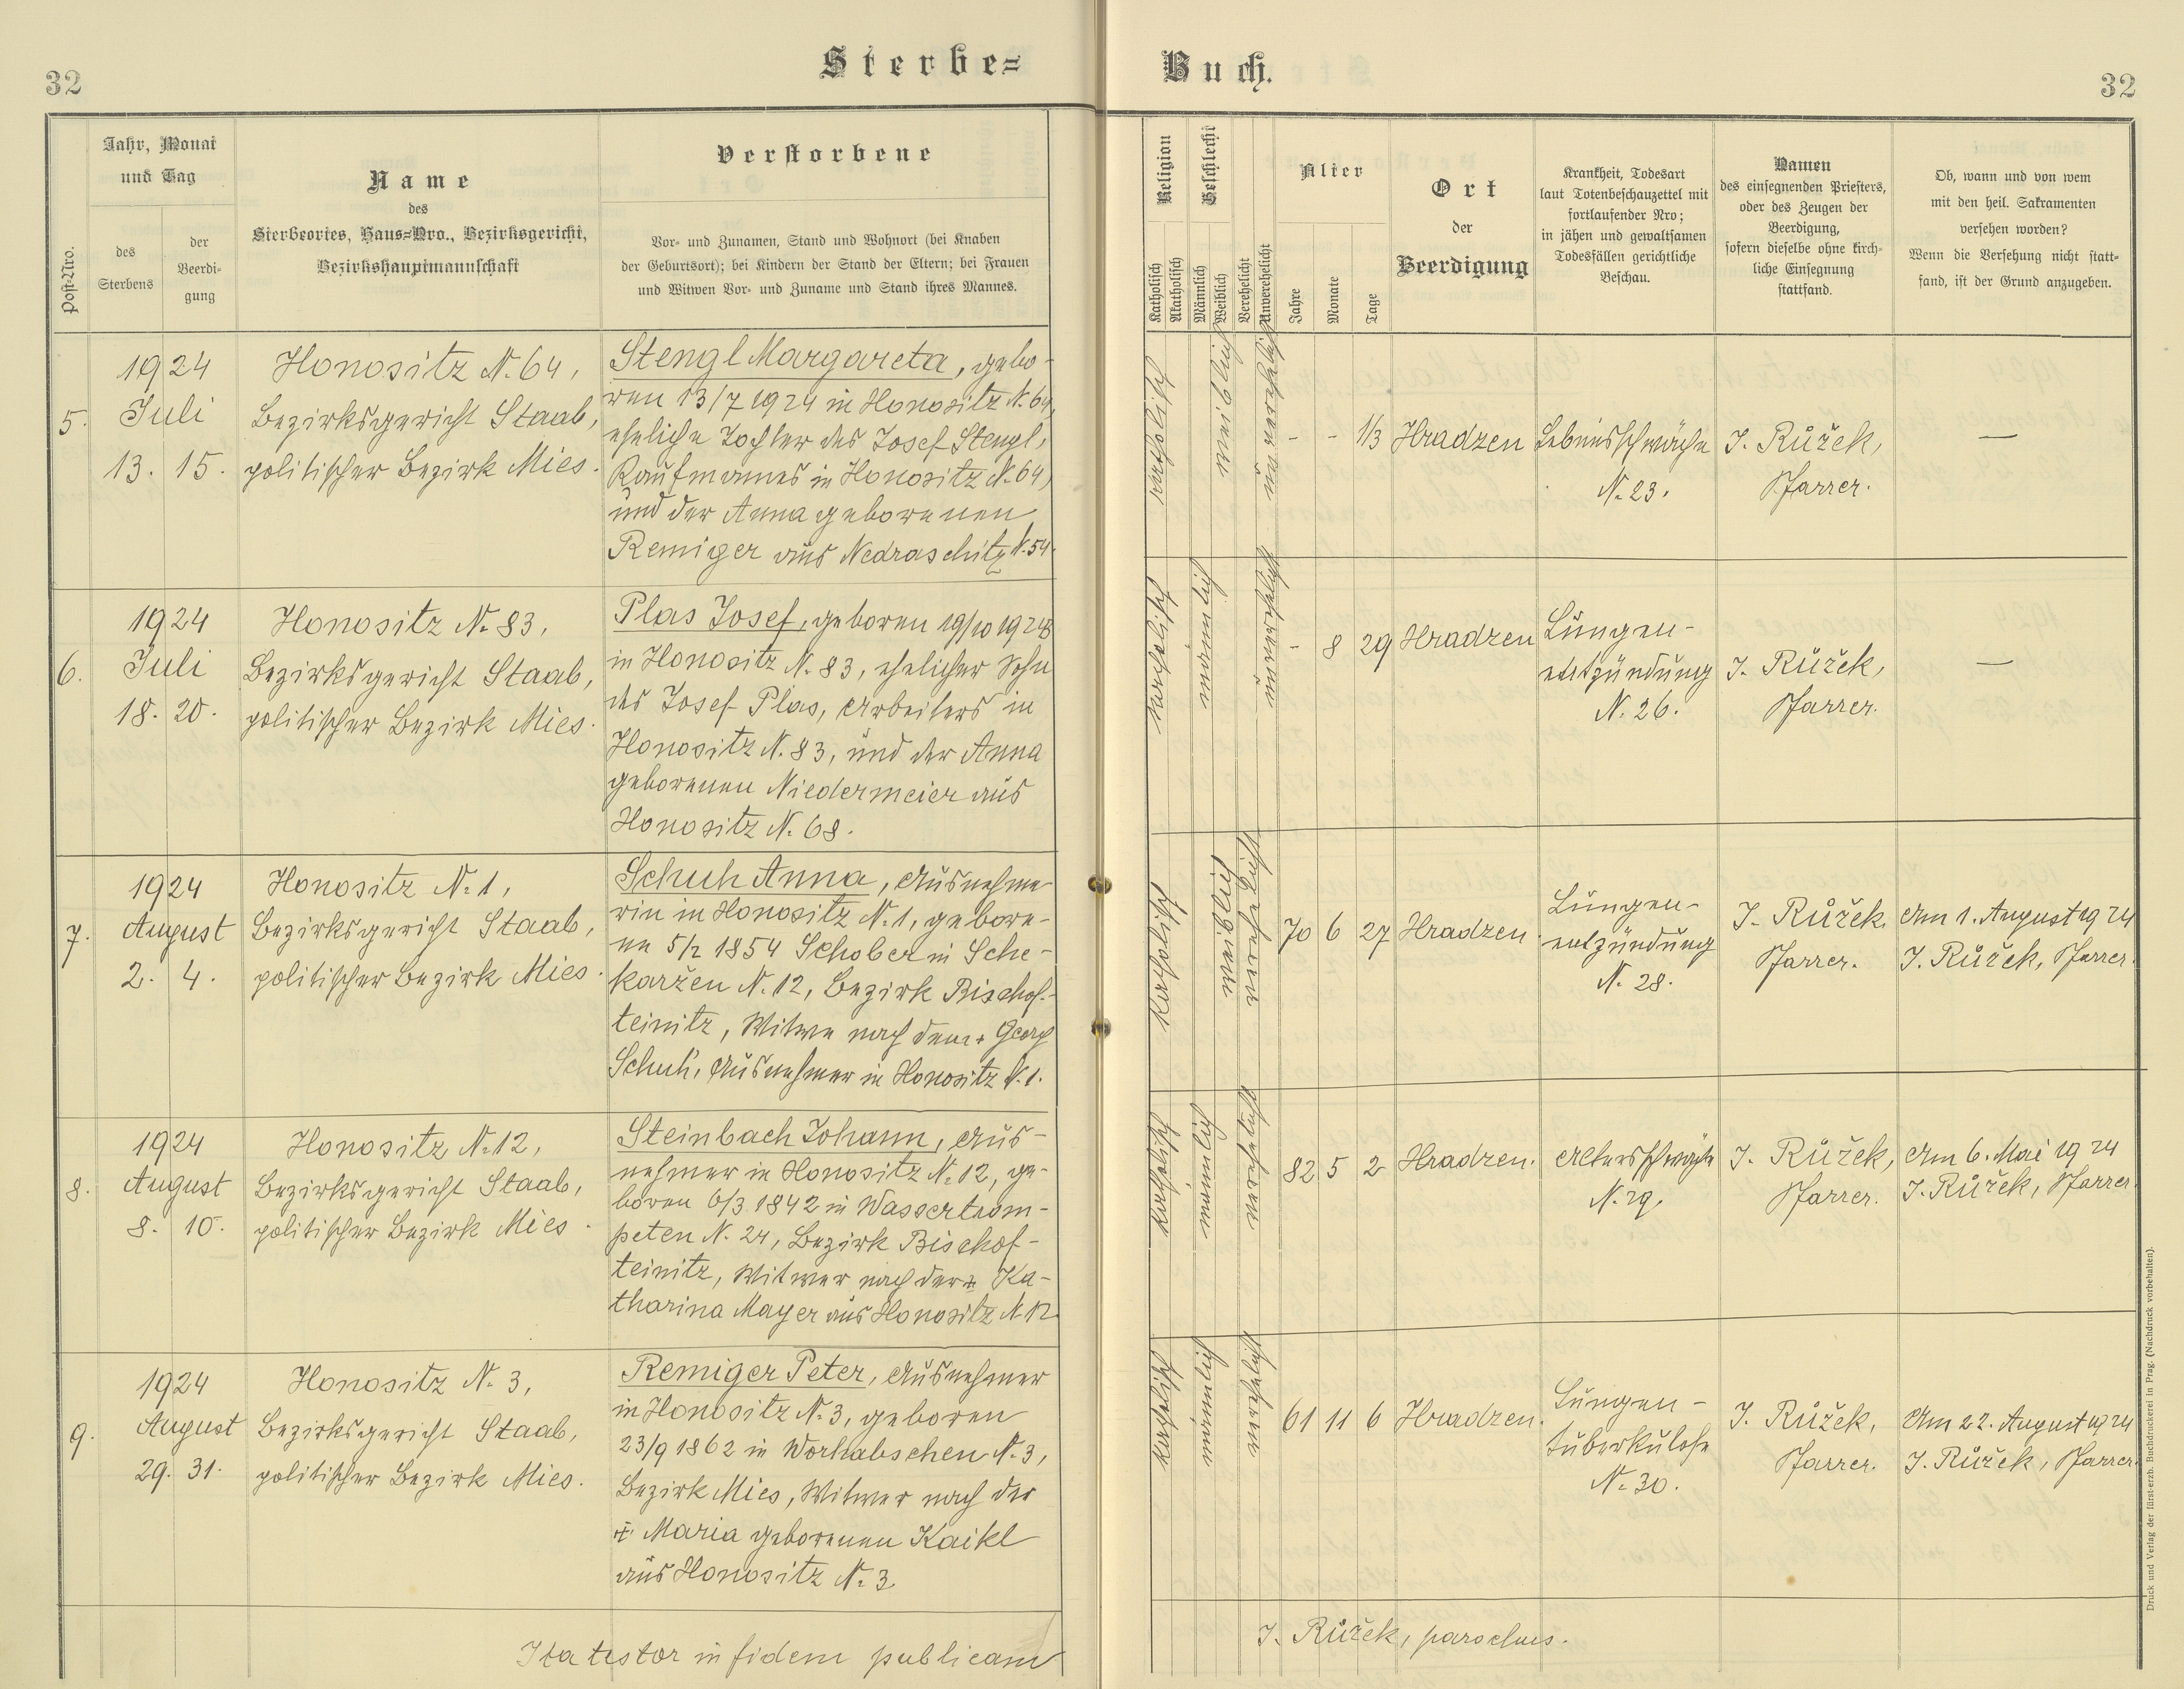 32
Sterbe=
Jahr, Monat
und Tag
Post-Nro.
des
Sterbens
der
Beerdi-
gung
Name
des
Sterbeortes, Haus=Nro., Bezirksgericht,
Bezirkshauptmannschaft
Verstorbene
Vor- und Zunamen, Stand und Wohnort (bei Knaben
der Geburtsort); bei Kindern der Stand der Eltern; bei Frauen
und Witwen Vor- und Zuname und Stand ihres Mannes.
5.
1924
Juli
13. 15.
Honositz N. 64,
Bezirksgericht Staab,
politischer Bezirk Mies.
Stengl Margareta, gebo-
ren 13/7 1924 in Honositz N. 64,
eheliche Tochter des Josef Stengl,
Kaufmannes in Honositz N. 64,
und der Anna geborenen
Remiger aus Nedraschitz N. 54.
6.
1924
Juli
18. 20.
Honositz N. 83,
Bezirksgericht Staab,
politischer Bezirk Mies.
Plas Josef, geboren 19/10 1923
in Honositz N. 83, ehelicher Sohn
des Josef Plas, Arbeiters in
Honositz N. 83, und der Anna
geborenen Niedermeier aus
Honositz N. 68.
7.
1924
August
2. 4.
Honositz N. 1,
Bezirksgericht Staab,
politischer Bezirk Mies.
Schuh Anna, Ausnehme-
rin in Honositz N. 1, gebore-
ne 5/1 1854 Schober in Sche-
karžen N. 12, Bezirk Bischof-
teinitz, Witwe nach dem + Georg
Schuh, Ausnehmer in Honositz N. 1.
8.
1924
August
8. 10.
Honositz N. 12,
Bezirksgericht Staab,
politischer Bezirk Mies.
Steinbach Johann, Aus-
nehmer in Honositz N. 12, ge-
boren 6/3 1842 in Wassertrom-
peten N. 24, Bezirk Bischof-
teinitz, Witwer nach der + Ka-
tharina Mayer aus Honositz N. 12.
9.
1924
August
29. 31.
Honositz N. 3,
Bezirksgericht Staab,
politischer Bezirk Mies.
Remiger Peter, Ausnehmer
in Honositz N. 3, geboren
23/9 1862 in Worhabschen N. 3,
Bezirk Mies, Witwer nach der
+ Maria geborenen Kaikl
aus Honositz N. 3
Ita testor in fidem publicam
Buch.
32
Religion
Geschlecht
Katholisch
Akatholisch
Männlich
Weiblich
Verehelicht
Unverehelicht
Alter
Jahre
Monate
Tage
Ort
der
Beerdigung
Krankheit, Todesart
laut Totenbeschauzettel mit
fortlaufender Nro;
in jähen und gewaltsamen
Todesfällen gerichtliche
Beschau.
Namen
des einsegnenden Priesters,
oder des Zeugen der
Beerdigung,
sofern dieselbe ohne kirch-
liche Einsegnung
stattfand.
Ob, wann und von wem
mit den heil. Sakramenten
versehen worden?
Wenn die Versehung nicht statt-
fand, ist der Grund anzugeben.
katholisch
weiblich
unverehelicht
- - 1/3
Hradzen
Lebensschwäche
N. 23.
J. Růžek,
Pfarrer.
—
katholisch
männlich
unverehelicht
- 8 29
Hradzen
Lungen-
entzündung
N. 26.
J. Růžek,
Pfarrer.
—
katholisch
weiblich
verehelicht
70 6 27
Hradzen.
Lungen-
entzündung
N. 28.
J. Růžek,
Pfarrer.
Am 1. August 1924
J. Růžek, Pfarrer.
katholisch
männlich
verehelicht
82 5 2
Hradzen.
Altersschwäche
N. 29.
J. Růžek,
Pfarrer.
Am 6. Mai 1924
J. Růžek, Pfarrer.
katholisch
männlich
verehelicht
61 11 6
Hradzen.
Lungen-
tuberkulose
N. 30.
J. Růžek,
Pfarrer.
Am 22. August 1924
J. Růžek, Pfarrer.
J. Růžek, parochus.
Druck und Verlag der fürst-erzb. Buchdruckerei in Prag. (Nachdruck vorbehalten).